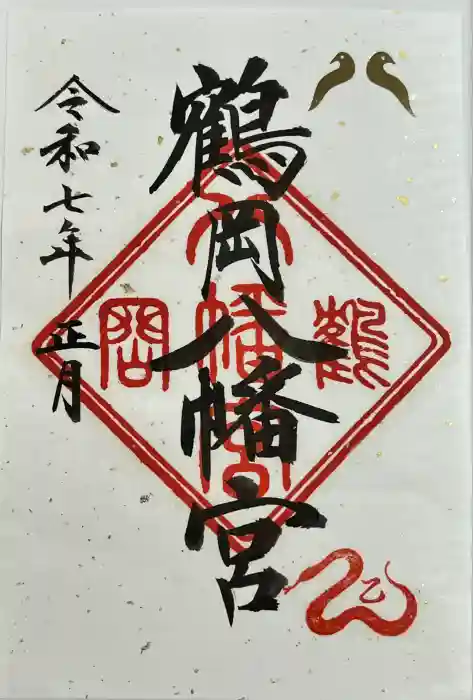 鶴岡八幡宮
令和七年正月
鶴
岡
八
幡
宮
乙